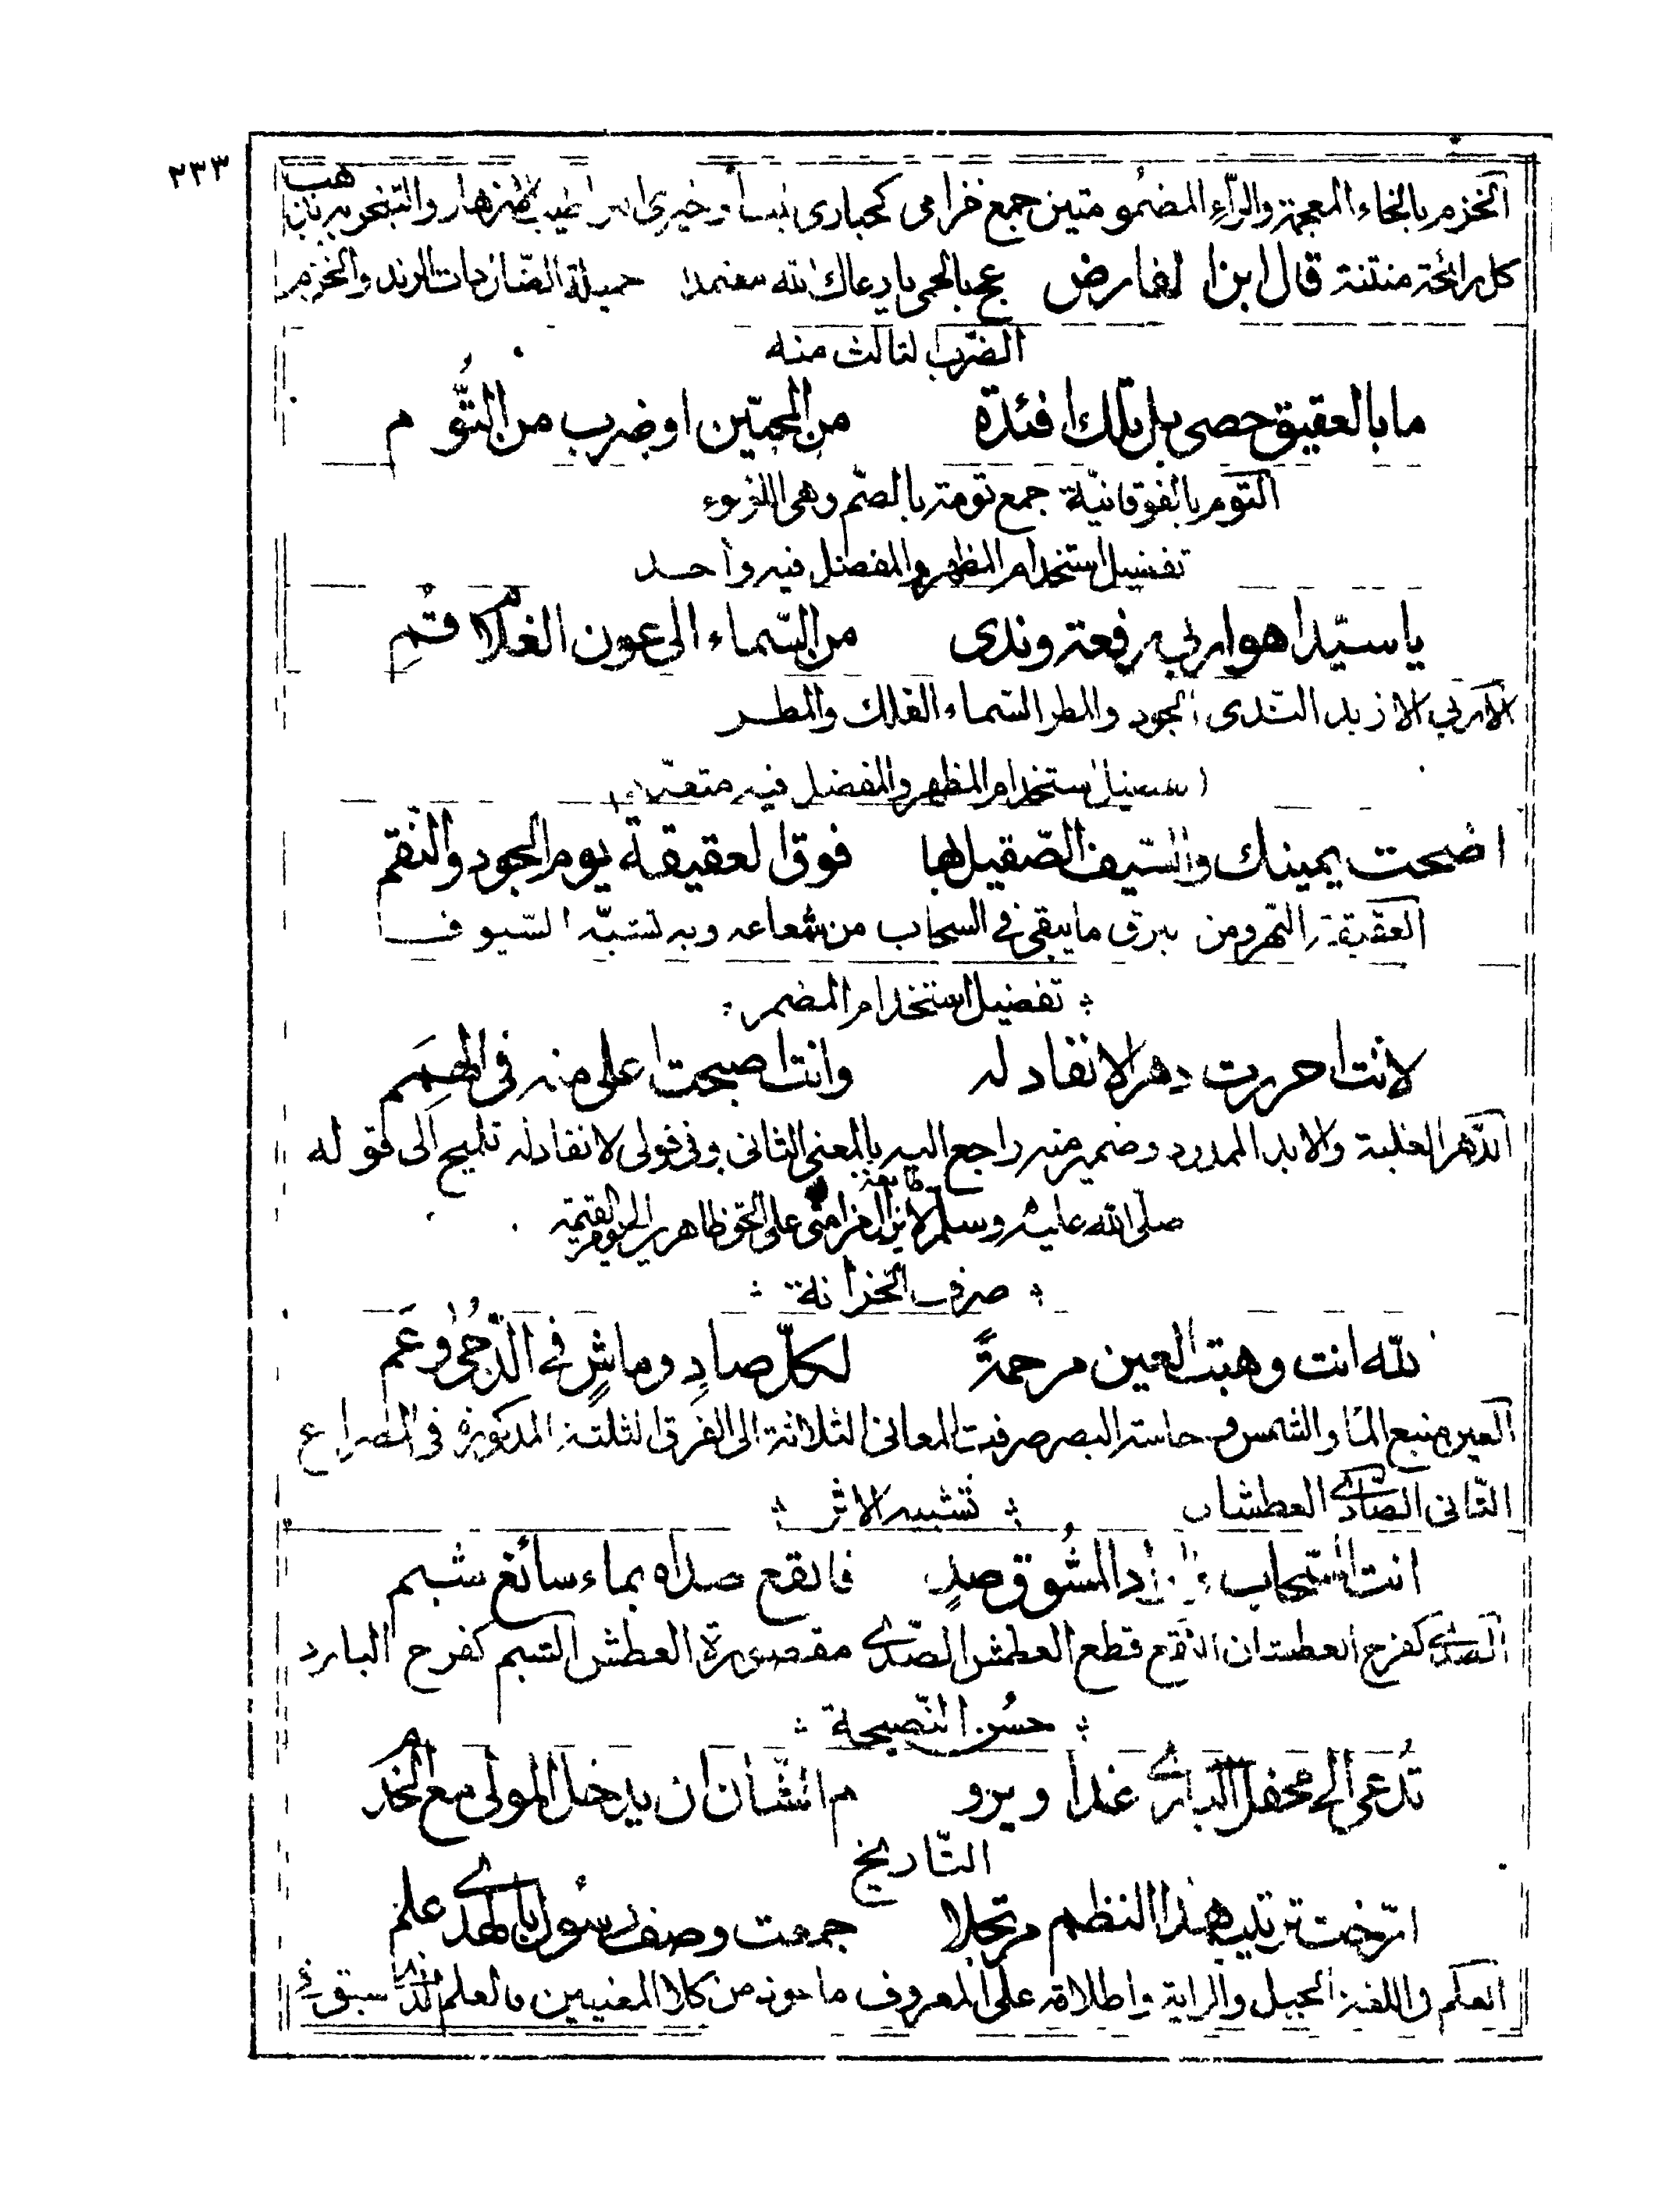 ٢٣٣
الخزم بالخاء المعجمة والراء المضمومتين جمع خزامى كحبارى نبت أو خيرى البر اطيب الازهار والتبخر به يذهب
كل رائحة منتنة قال ابن الفارض عج بالحمى يا رعاك الله معتمدا خميلة الضال ذات الرند والخزم
الضرب الثالث منه
ما بالعقيق حصى بل تلك افئدة من المحبّين او ضرب من التُّوم
التوم بالفوقانيّة جمع تومة بالضم وهى اللؤلوء
تفضيل استخدام المظهر والمفضل فيه واحد
يا سيّدا هو اربى رفعة وندى من السّماء الى عون الغلام قُمِ
الاربى الازيد النّدى الجود والمطر السّماء الفلك والمطر
تفضيل استخدام المظهر والمفضل فيه متعدّد
اضحت يمينك والسّيف الصّقيل لها فوق العقيقة يوم الجود والنّقم
العقيقة النّهر ومن برق ما يبقى فى السحاب من شعاعه وبه تشبّه السّيوف
تفضيل استخدام المضمر
لانت احرزت دهرا لا نفاد له وانت اصبحت اعلى منه فى الهِمَم
الدّهر الغلبة والابد الممدود وضمير منه راجع اليه بالمعنى الثانى وفى قولى لا نفاد له تلميح الى قوله
صلّى الله عليه وسلّم لا يزال طائفة من امتى على الحق ظاهرين الى يوم القيمة
صرف الخزانة
لله انت وهبت العين مرحمةً لكلّ صادٍ وماشٍ فى الدُّجى وعَم
العين منبع الماء والشمس و حاسة البصر صرفت المعانى الثلاثة الى الفرق الثلثة المذكورة فى المصراع
الثّانى الصّادى العطشان تشبيه الاثر
انت السّحاب زاد الشّوق صدٍ فانقع صداه بماء سائغ شبم
الصدى كفرح العطشان النقع قطع العطش الصّدى مقصورة العطش الشبم كفرح البارد
حُسن النّصيحة
تُدعى الى محفل البارى غدا ويرو م الشّان ان يدخل المولى مع الخدم
التّاريخ
ارّخت ترتيب هذا النظم مرتجلا جمعت وصف رسول بالهدى علم
العلم فى اللغة الجبل والراية واطلاقه على المعروف ماخوذ من كلا المعنيين والعلم الذى سبق